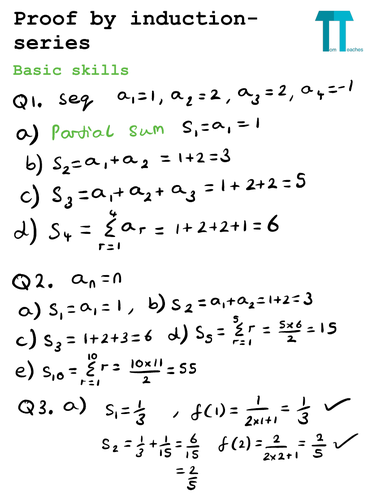 Proof by induction-
series
Tom
Teaches
Basic skills
Q1. seq a₁=1, a₂=2, a₃=2, a₄=-1
a) Partial sum S₁=a₁=1
b) S₂=a₁+a₂ = 1+2=3
c) S₃=a₁+a₂+a₃ = 1+2+2=5
d) S₄ = ⁴Σᵣ₌₁ aᵣ = 1+2+2+1=6
Q2. aₙ=n
a) S₁=a₁=1, b) S₂=a₁+a₂=1+2=3
c) S₃=1+2+3=6 d) S₅=⁵Σᵣ₌₁ r = 5x6/2 = 15
e) S₁₀=¹⁰Σᵣ₌₁ r = 10x11/2 = 55
Q3. a) S₁=1/3 , f(1) = 1/2x1+1 = 1/3 ✓
S₂ = 1/3 + 1/15 = 6/15 f(2) = 2/2x2+1 = 2/5 ✓
= 2/5